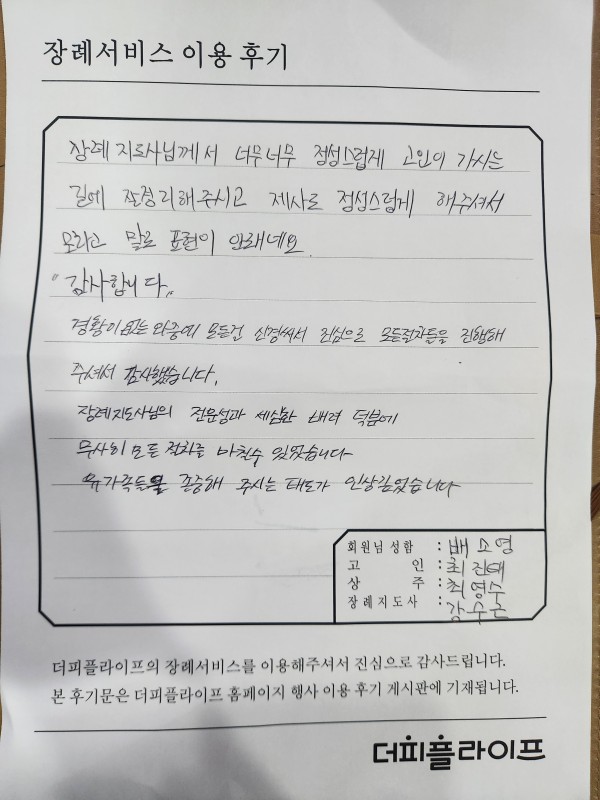 장례서비스 이용 후기
장례 지도사님께서 너무너무 정성스럽게 고인이 가시는
길에 잘정리해주시고 제사도 정성스럽게 해주셔서
모라고 말로 표현이 안돼네요.
"감사합니다"
경황이없는 와중에 모든건 신경써서 진심으로 모든절차들을 진행해
주셔서 감사했습니다.
장례지도사님의 전문성과 세심한 배려 덕분에
무사히 모든 절차를 마칠수 있었습니다
유가족들을 존중해 주시는 태도가 인상깊었습니다
회원님 성함 : 배소영
고 인 : 최진태
상 주 : 최영수
장례지도사 : 강수근
더피플라이프의 장례서비스를 이용해주셔서 진심으로 감사드립니다.
본 후기문은 더피플라이프 홈페이지 행사 이용 후기 게시판에 기재됩니다.
더피플라이프